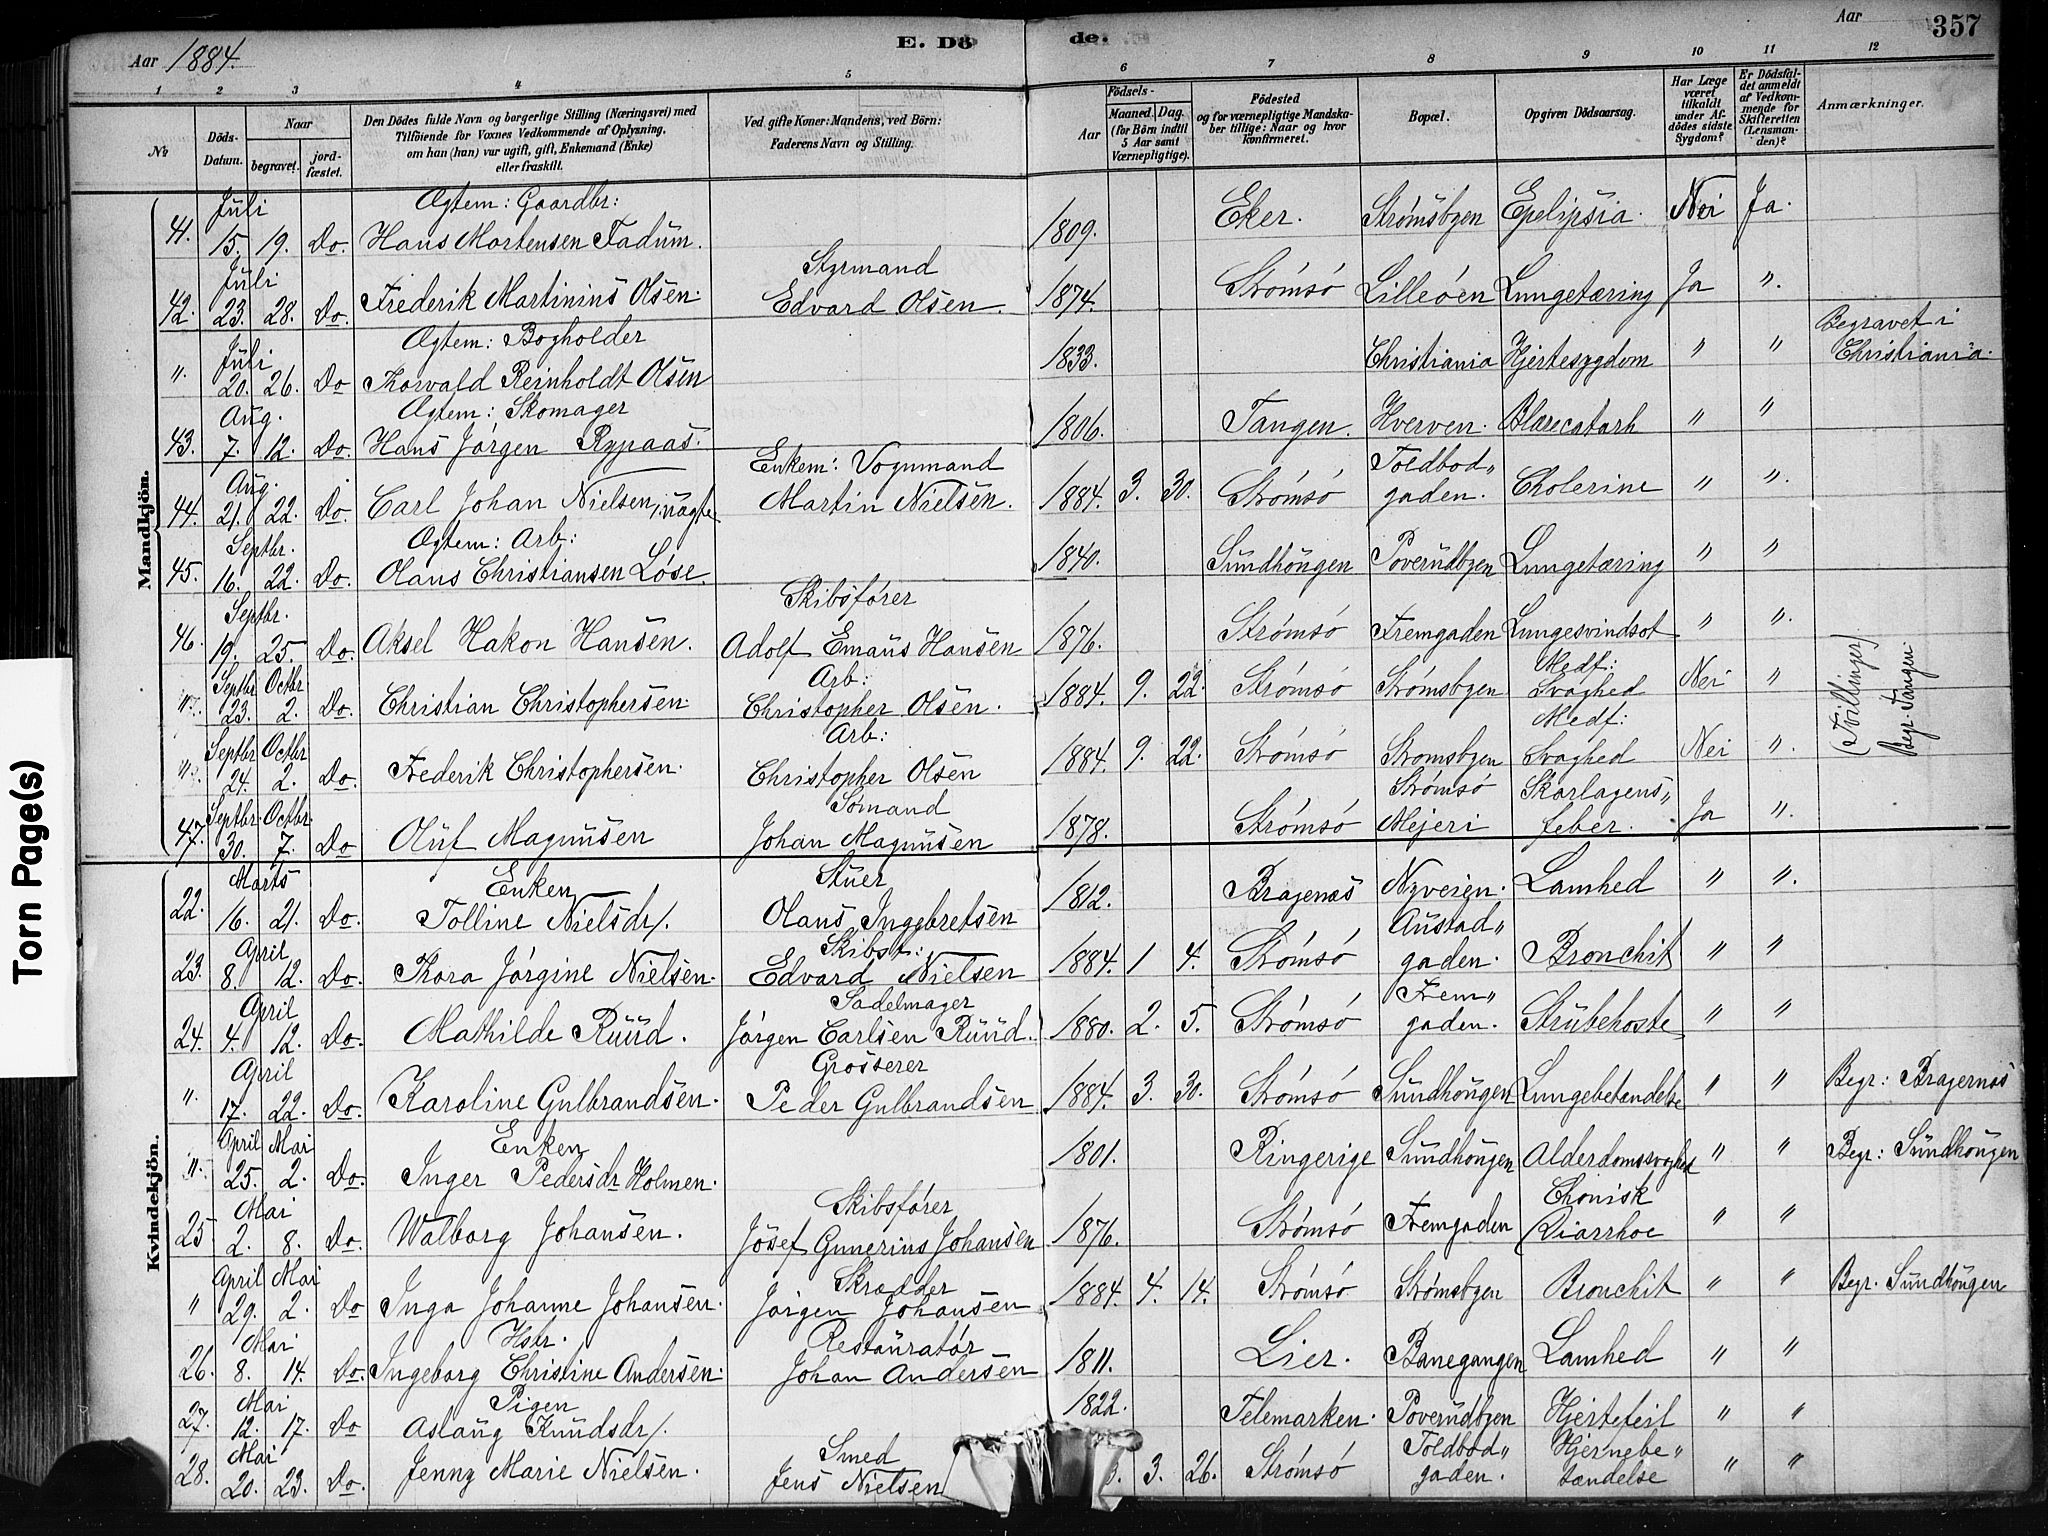 Aar 1884.
E. Dö de.
Aar 357
1 2 3 4 5 6 7 8 9 10 11 12
No
Döds-Datum.
Naar
begravet.
jord-fæstet.
Den Dödes fulde Navn og borgerlige Stilling (Næringsvei) med
Tilföiende for Voxnes Vedkommende af Oplysning,
om han (hun) var ugift, gift, Enkemand (Enke)
eller fraskilt.
Ved gifte Koner: Mandens, ved Börn:
Faderens Navn og Stilling.
Födsels-
Aar
Maaned. Dag.
(for Börn indtil
5 Aar samt
Værnepligtige).
Födested
og for værnepligtige Mandska-
ber tillige: Naar og hvor
konfirmeret.
Bopæl.
Opgiven Dödsaarsag.
Har Læge
været
tilkaldt
under Af-
dödes sidste
Sygdom?
Er Dödsfal-
det anmeldt
af Vedkom-
mende for
Skifteretten
(Lensman-
den)?
Anmærkninger.
Mandkjön.
Juli Ægtem: Gaardbr:
41. 15. 19. Do. Hans Mortensen Fadum. 1809. Eker. Strømsbyen Epelipsia. Nei Ja.
Juli Styrmand
42. 23. 28. Do. Frederik Martinius Olsen. Edvard Olsen. 1874. Strømsø Lilleøen Lungetæring Ja ".
Juli Ægtem: Bogholder
". 20. 26. Do Thorvald Reinholdt Olsen 1833. Christiania Hjertesygdom " " Begravet i Christiania.
Aug. Ægtem: Skomager
43. 7. 12. Do. Hans Jørgen Rypaas. 1806. Tangen. Hverven. Blærecatarh " "
Aug. Enkem: Vognmand Toldbod"
44. 21. 22. Do. Carl Johan Nielsen, uægte Martin Nielsen. 1884. 3. 30. Strømsø gaden. Cholerine " ".
Septbr. Ægtem: Arb:
45. 16. 22. Do. Olaus Christiansen Løse. 1840. Sundhougen Poverudbyen Lungetæring " "
Septbr. Skibsfører
46. 19. 25. Do. Aksel Hakon Hansen. Adolf Emaus Hansen 1876. Strømsø Fremgaden Lungesvindsot " ".
Septbr Octbr Arb: Medf:
" 23. 2. Do. Christian Christophersen. Christopher Olsen. 1884. 9. 22. Strømsø Strømsbyen Svaghed Nei "
(Tvillinger)
Begr. Tangen.
Septbr Octbr Arb: Medf:
" 24. 2. Do. Frederik Christophersen. Christopher Olsen 1884. 9. 22. Strømsø Stromsbyen Svaghed Nei ".
Septbr. Octbr. Sømand Strømsø Skarlagens"
47. 30. 7. Do Oluf Magnusen Johan Magnusen 1878. Strømsø Mejeri feber. Ja ".
Kvindekjön.
Marts Enken Stuer
22. 16. 21. Do. Tolline Nielsdr/. Olaus Ingebretsen 1812. Bragenæs Nyveien. Lamhed " ".
April Skibst: Austad"
23. 8. 12. Do. Thora Jørgine Nielsen. Edvard Nielsen 1884. 1 4. Strømsø gaden. Bronchit " "
April Sadelmager Frem"
24. 4. 12. Do. Mathilde Ruud. Jørgen Carlsen Ruud. 1880. 2. 5. Strømsø gaden. Strubehoste " "
April Grosserer
". 17. 22. Do. Karoline Gulbrandsen. Peder Gulbrandsen 1884. 3. 30. Strømsø Sundhougen Lungebetændelse " " Begr: Bragernæs
April Mai Enken
". 25. 2. Do. Inger Pedersdr Holmen. 1801. Ringerige Sundhougen Alderdomssvaghed " " Begr: Sundhougen
Mai Skibsfører Chonisk
25 2. 8. Do. Walborg Johansen. Josef Gunerius Johansen 1876. Strømsø Fremgaden Diarrhoe " "
April Mai Skrædder
" 29. 2. Do Inga Johanne Johansen. Jørgen Johansen 1884. 4. 14. Strømsø Strømsbyen Bronchit " " Begr. Sundhougen
Mai Hstr. Restauratør
26. 8. 14. Do. Ingeborg Christine Andersen. Johan Andersen 1811. Lier. Banegangen Lamhed " "
Mai Pigen
27. 12. 17. Do Aslaug Knudsdr/. 1822. Telemarken. Poverudbyen Hjertefeil " "
Mai Smed Toldbod" Hjernebe"
28. 20. 23. Do. Jenny Marie Nielsen. Jens Nielsen 3. 3. 26. Strømsø gaden. tændelse " "
Torn Page(s)